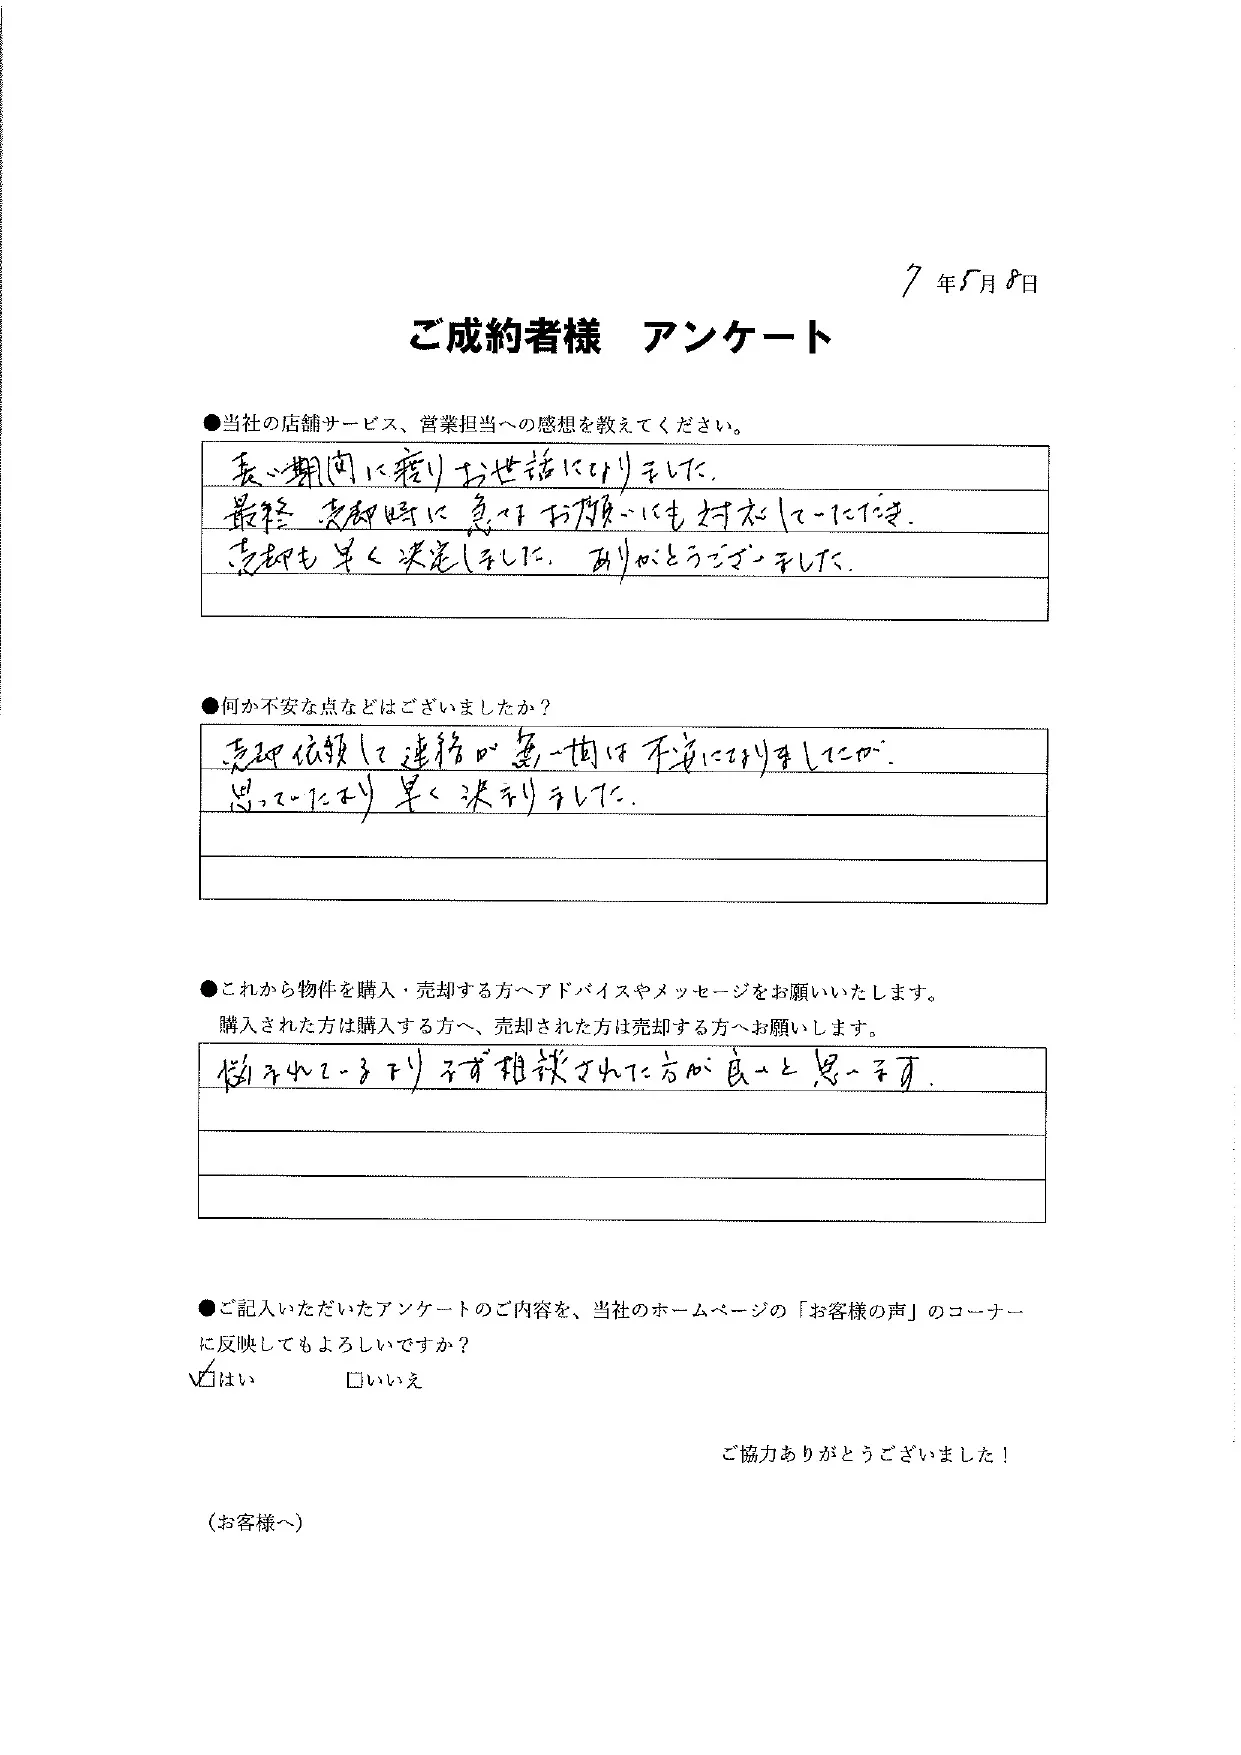 7年5月8日
ご成約者様 アンケート
●当社の店舗サービス、営業担当への感想を教えてください。
長い期間に渡りお世話になりました.
最終 売却時に 急なお願いにも対応していただき.
売却も早く決定しました. ありがとうございました.
●何か不安な点などはございましたか?
売却依頼して連絡が無い間は不安になりましたが.
思っていたより早く決まりました.
●これから物件を購入・売却する方へアドバイスやメッセージをお願いいたします。
購入された方は購入する方へ、売却された方は売却する方へお願いします。
悩まれているよりまず相談された方が良いと思います.
●ご記入いただいたアンケートのご内容を、当社のホームページの「お客様の声」のコーナー
に反映してもよろしいですか?
☑はい □いいえ
ご協力ありがとうございました!
(お客様へ)